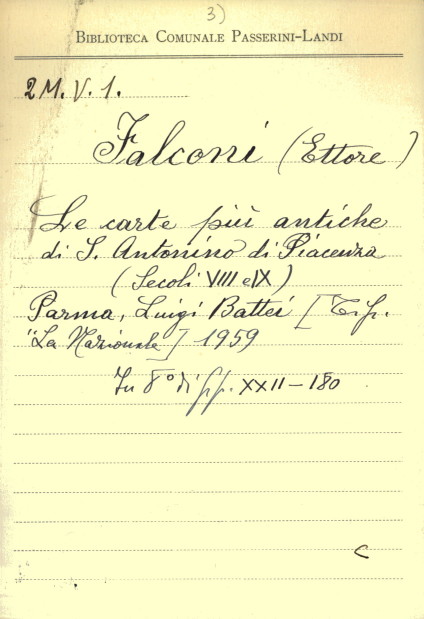 3)
BIBLIOTECA COMUNALE PASSERINI-LANDI
2M.V.1.
Falconi (Ettore)
Le carte più antiche
di S. Antonino di Piacenza
(Secoli VIII e IX)
Parma, Luigi Battei [Tip.
"La Nazionale] 1959
In 8° di pp. XXII-180
C